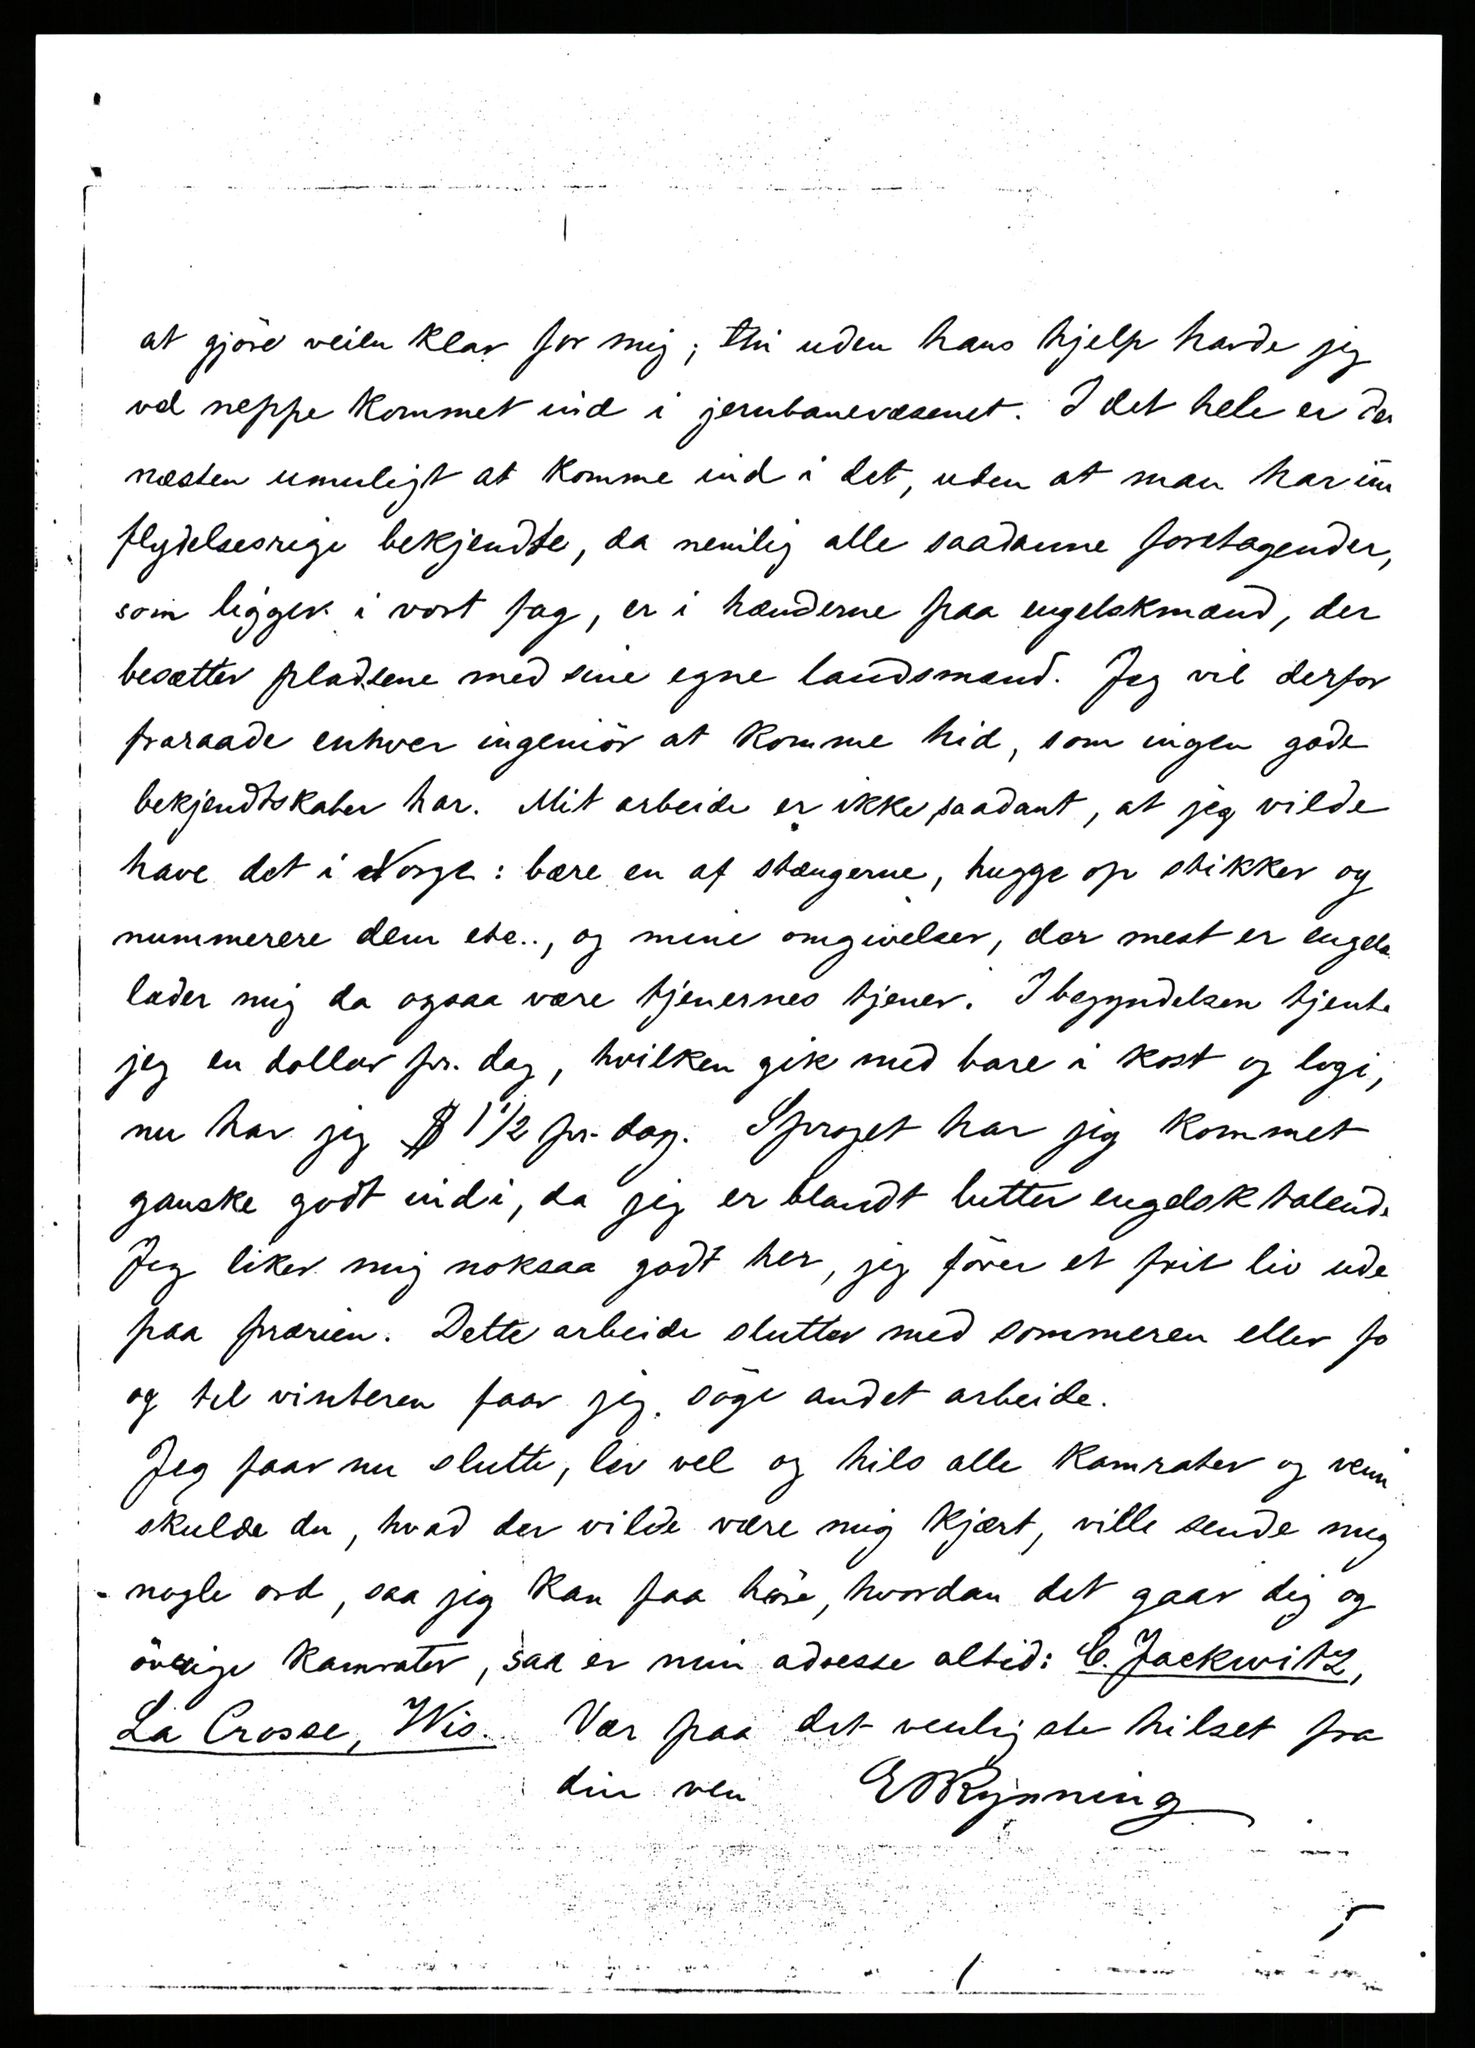 at gjöre veien klar for mig; thi uden hans hjelp havde jeg
vel neppe kommet ind i jernbanevæsenet. I det hele er de
næsten umuligt at komme ind i det, uden at man har in
flydelsesrige bekjendte, da nemlig alle saadanne foretagender,
som ligger i vort fag, er i hænderne paa engelskmænd, der
besætter pladsene med sine egne landsmænd. Jeg vil derfor
fraraade enhver ingeniör at komme hid, som ingen gode
bekjendtskaber har. Mit arbeide er ikke saadant, at jeg vilde
have det i Norge: bære en af stængerne, hugge op stikker og
nummerere dem etc.., og mine omgivelser, der mest er engels
lader mig da ogsaa være tjenernes tjener. I begyndelsen tjente
jeg en dollar pr. dag, hvilken gik med bare i kost og logi,
nu har jeg $ 1 1/2 pr. dag. Sproget har jeg kommet
ganske godt ind i, da jeg er blandt lutter engelsk talende
Jeg liker mig noksaa godt her, jeg förer et frit liv ude
paa prærien. Dette arbeide slutter med sommeren eller fø
og til vinteren faar jeg söge andet arbeide.
Jeg faar nu slutte, lev vel og hils alle kamrater og venn
skulde du, hvad der vilde være mig kjært, ville sende mig
nogle ord, saa jeg kan faa höre, hvordan det gaar dig og
övrige kamrater, saa er min adresse altid: C. Jackwitz,
La Crosse, Wis. Vær paa det venligste hilset fra
din ven ERynning